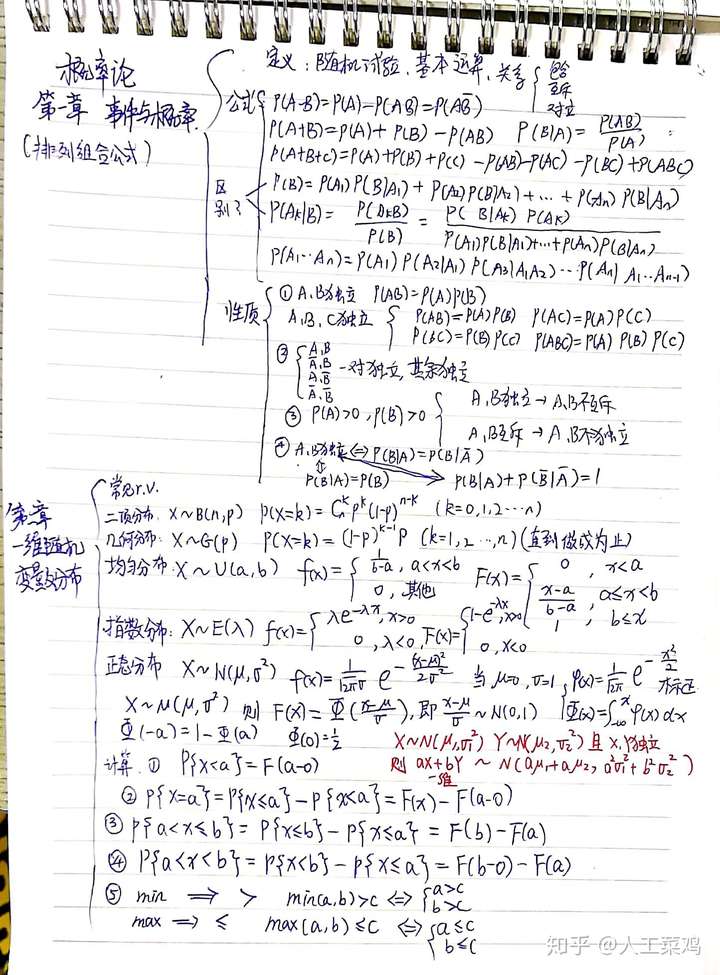 概率论
第一章 事件与概率
(排列组合公式)
定义:随机试验、基本运算、关系 { 包含 互斥 对立
公式
P(A-B)=P(A)-P(AB)=P(AB̅)
P(A+B)=P(A)+P(B)-P(AB) P(B|A)=P(AB)/P(A)
P(A+B+C)=P(A)+P(B)+P(C)-P(AB)-P(AC)-P(BC)+P(ABC)
区别?
P(B)=P(A₁)P(B|A₁)+P(A₂)P(B|A₂)+…+P(An)P(B|An)
P(Ak|B)=P(AkB)/P(B)=P(B|Ak)P(Ak)/P(A₁)P(B|A₁)+…+P(An)P(B|An)
P(A₁…An)=P(A₁)P(A₂|A₁)P(A₃|A₁A₂)…P(An|A₁…An-1)
性质
① A,B独立 P(AB)=P(A)P(B)
A,B,C独立 { P(AB)=P(A)P(B) P(AC)=P(A)P(C)
P(BC)=P(B)P(C) P(ABC)=P(A)P(B)P(C)
② { A,B A̅,B A,B̅ A̅,B̅ 一对独立,其余独立
③ P(A)>0,P(B)>0 { A,B独立→A,B不互斥
A,B互斥→A,B不独立
④ A,B独立⇔P(B|A)=P(B|A̅)
⇕
P(B|A)=P(B) P(B|A)+P(B̅|A̅)=1
第二章
一维随机
变量分布
常见r.v.
二项分布:X~B(n,p) P(X=k)=Cₙᵏpᵏ(1-p)ⁿ⁻ᵏ (k=0,1,2…n)
几何分布:X~G(p) P(X=k)=(1-p)ᵏ⁻¹p (k=1,2…,n)(直到做成为止)
均匀分布:X~U(a,b) f(x)={ 1/(b-a), a<x<b 0,其他 F(x)={ 0, x<a (x-a)/(b-a), a≤x<b 1, b≤x
指数分布:X~E(λ) f(x)={ λe^(-λx), x>0 0,λ<0, F(x)={ 1-e^(-λx), x>0 0,x<0
正态分布 X~N(μ,σ²) f(x)=1/(√2πσ) e^(-(x-μ)²/2σ²) 当μ=0,σ=1, φ(x)=1/√2π e^(-x²/2) 标准正态
X~N(μ,σ²) 则 F(x)=Φ((x-μ)/σ),即 (x-μ)/σ~N(0,1) Φ(x)=∫₋∞ˣφ(x)dx
Φ(-a)=1-Φ(a) Φ(0)=½ X~N(μ₁,σ₁²) Y~N(μ₂,σ₂²)且X,Y独立
计算:① P{X<a}=F(a-0) 则 aX+bY ~ N(aμ₁+aμ₂, a²σ₁²+b²σ₂²)
一维
② P{X=a}=P{X≤a}-P{X<a}=F(x)-F(a-0)
③ P{a<x≤b}=P{X≤b}-P{X≤a}=F(b)-F(a)
④ P{a<x<b}=P{X<b}-P{X≤a}=F(b-0)-F(a)
⑤ min ⟹ > min(a,b)>c ⇔ { a>c b>c
max ⟹ ≤ max(a,b)≤c ⇔ { a≤c b≤c
知乎 @人工菜鸡